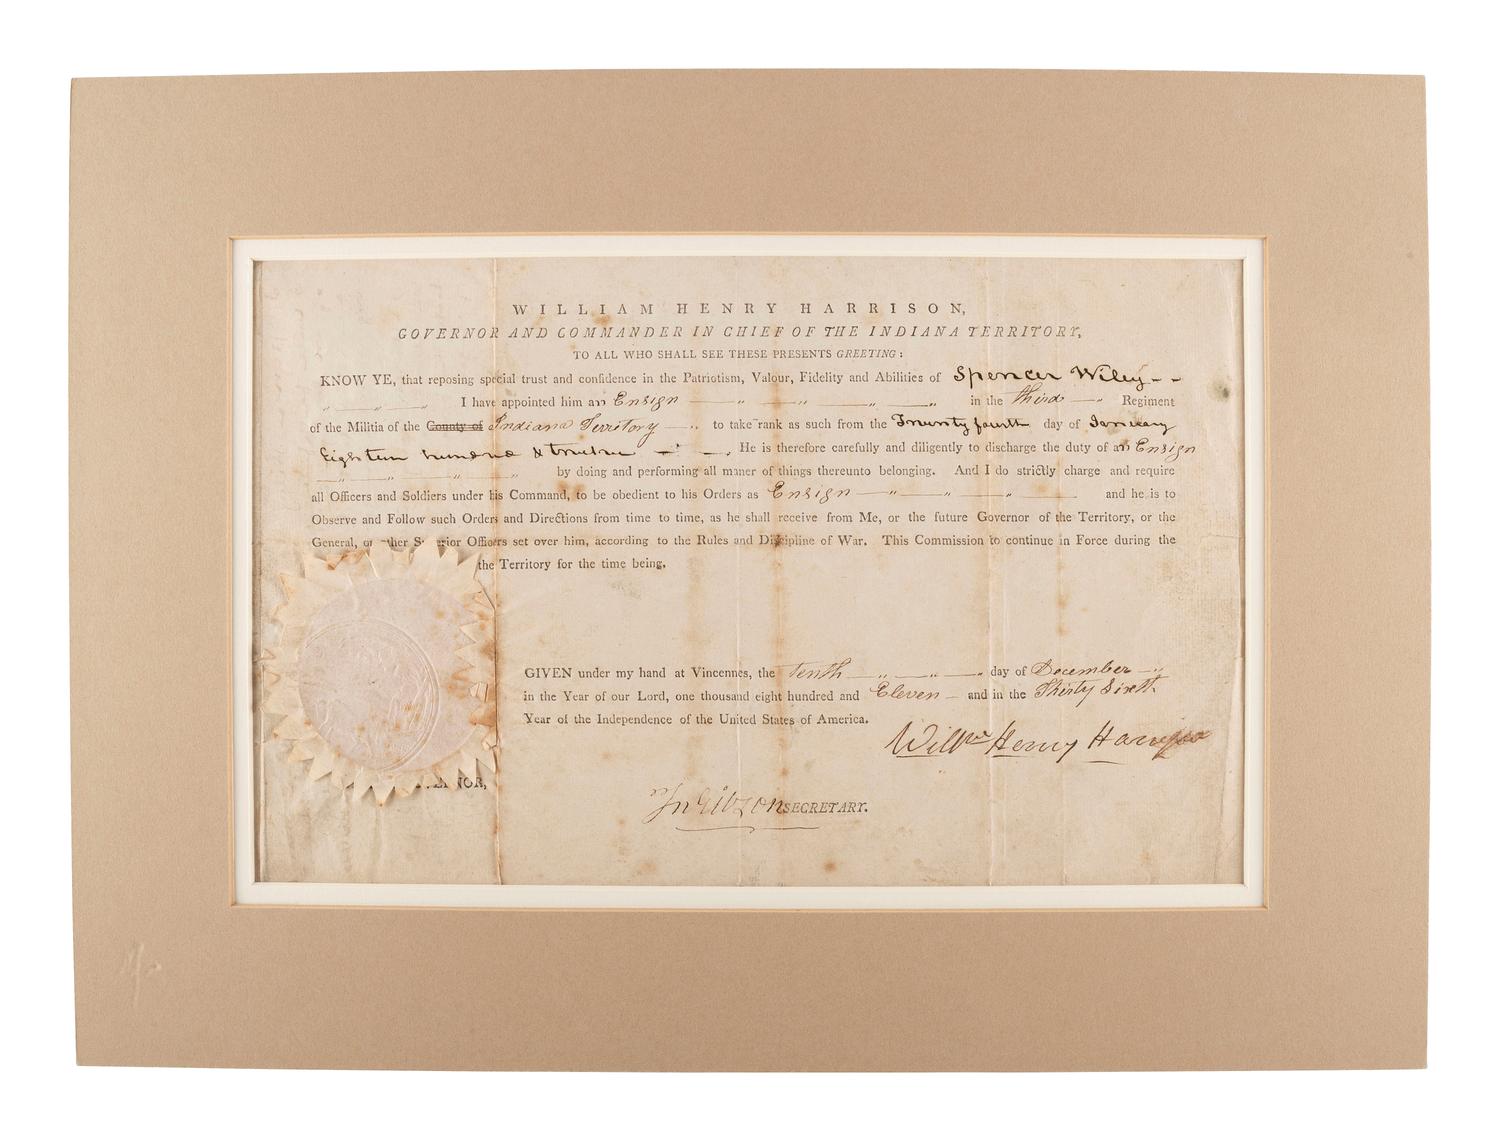 WILLIAM HENRY HARRISON,
GOVERNOR AND COMMANDER IN CHIEF OF THE INDIANA TERRITORY,
TO ALL WHO SHALL SEE THESE PRESENTS GREETING:
KNOW YE, that reposing special trust and confidence in the Patriotism, Valour, Fidelity and Abilities of Spencer Wiley
I have appointed him an Ensign in the third Regiment
of the Militia of the County of Indiana Territory to take rank as such from the Twenty fourth day of January
Eighteen hundred & twelve. He is therefore carefully and diligently to discharge the duty of an Ensign
by doing and performing all maner of things thereunto belonging. And I do strictly charge and require
all Officers and Soldiers under his Command, to be obedient to his Orders as Ensign and he is to
Observe and Follow such Orders and Directions from time to time, as he shall receive from Me, or the future Governor of the Territory, or the
General, or other Superior Officers set over him, according to the Rules and Discipline of War. This Commission to continue in Force during the
the Territory for the time being.
GIVEN under my hand at Vincennes, the tenth day of December
in the Year of our Lord, one thousand eight hundred and Eleven and in the Thirty Sixth
Year of the Independence of the United States of America.
Willm Henry Harrison
Jn Gibson SECRETARY.